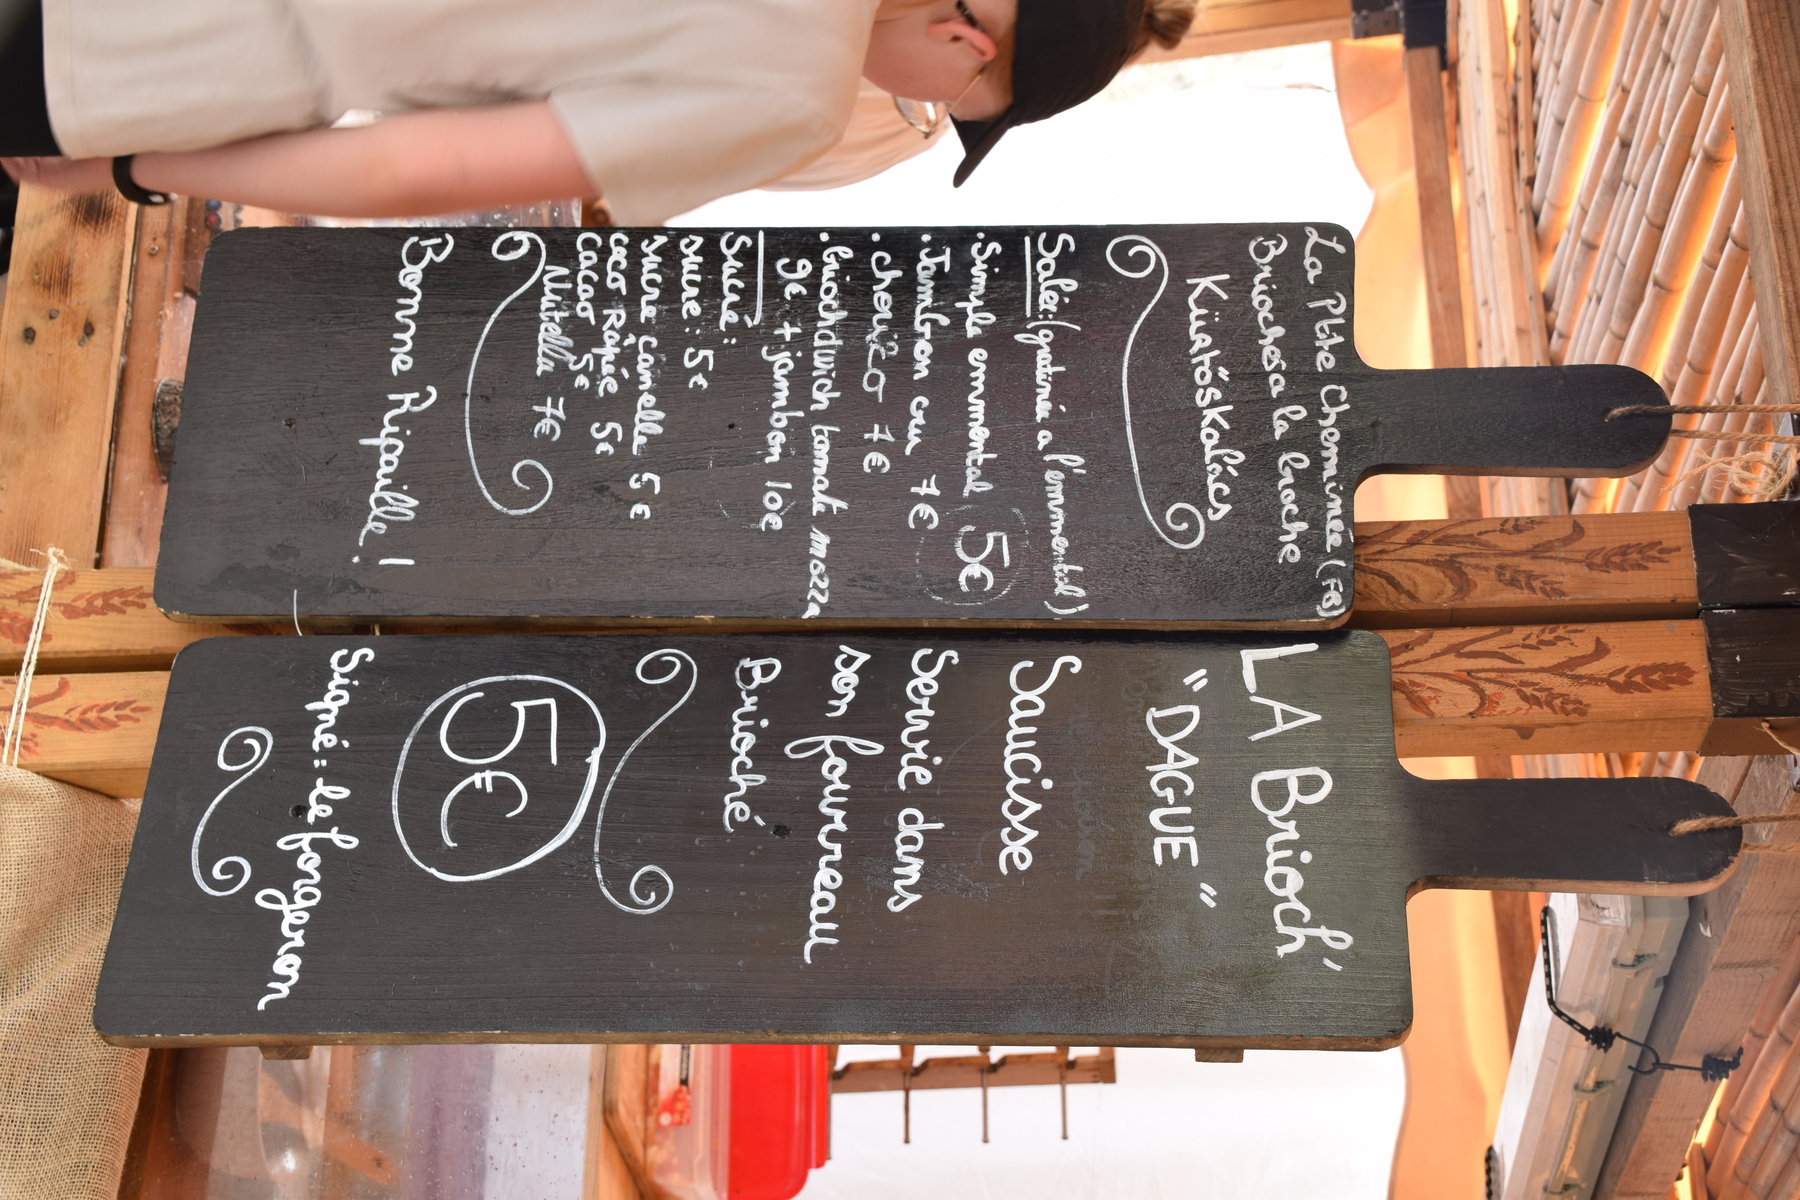 La Ptite Cheminée (FB)
Brioches a la broche
Kürtőskalács
Salée: (gratinée a l'emmental)
. Simple emmental 5€
. Jambon cru 7€
. chorizo 7€
. briochdwich tomate mozza
9€ + jambon 10€
Sucré :
sucre : 5€
sucre canelle 5€
coco Rapée 5€
Cacao 5€
Nutella 7€
Bonne Ripaille !
LA Brioch'
"DAGUE"
Saucisse
Servie dans
son fourreau
Brioché
5€
Signé : le forgeron